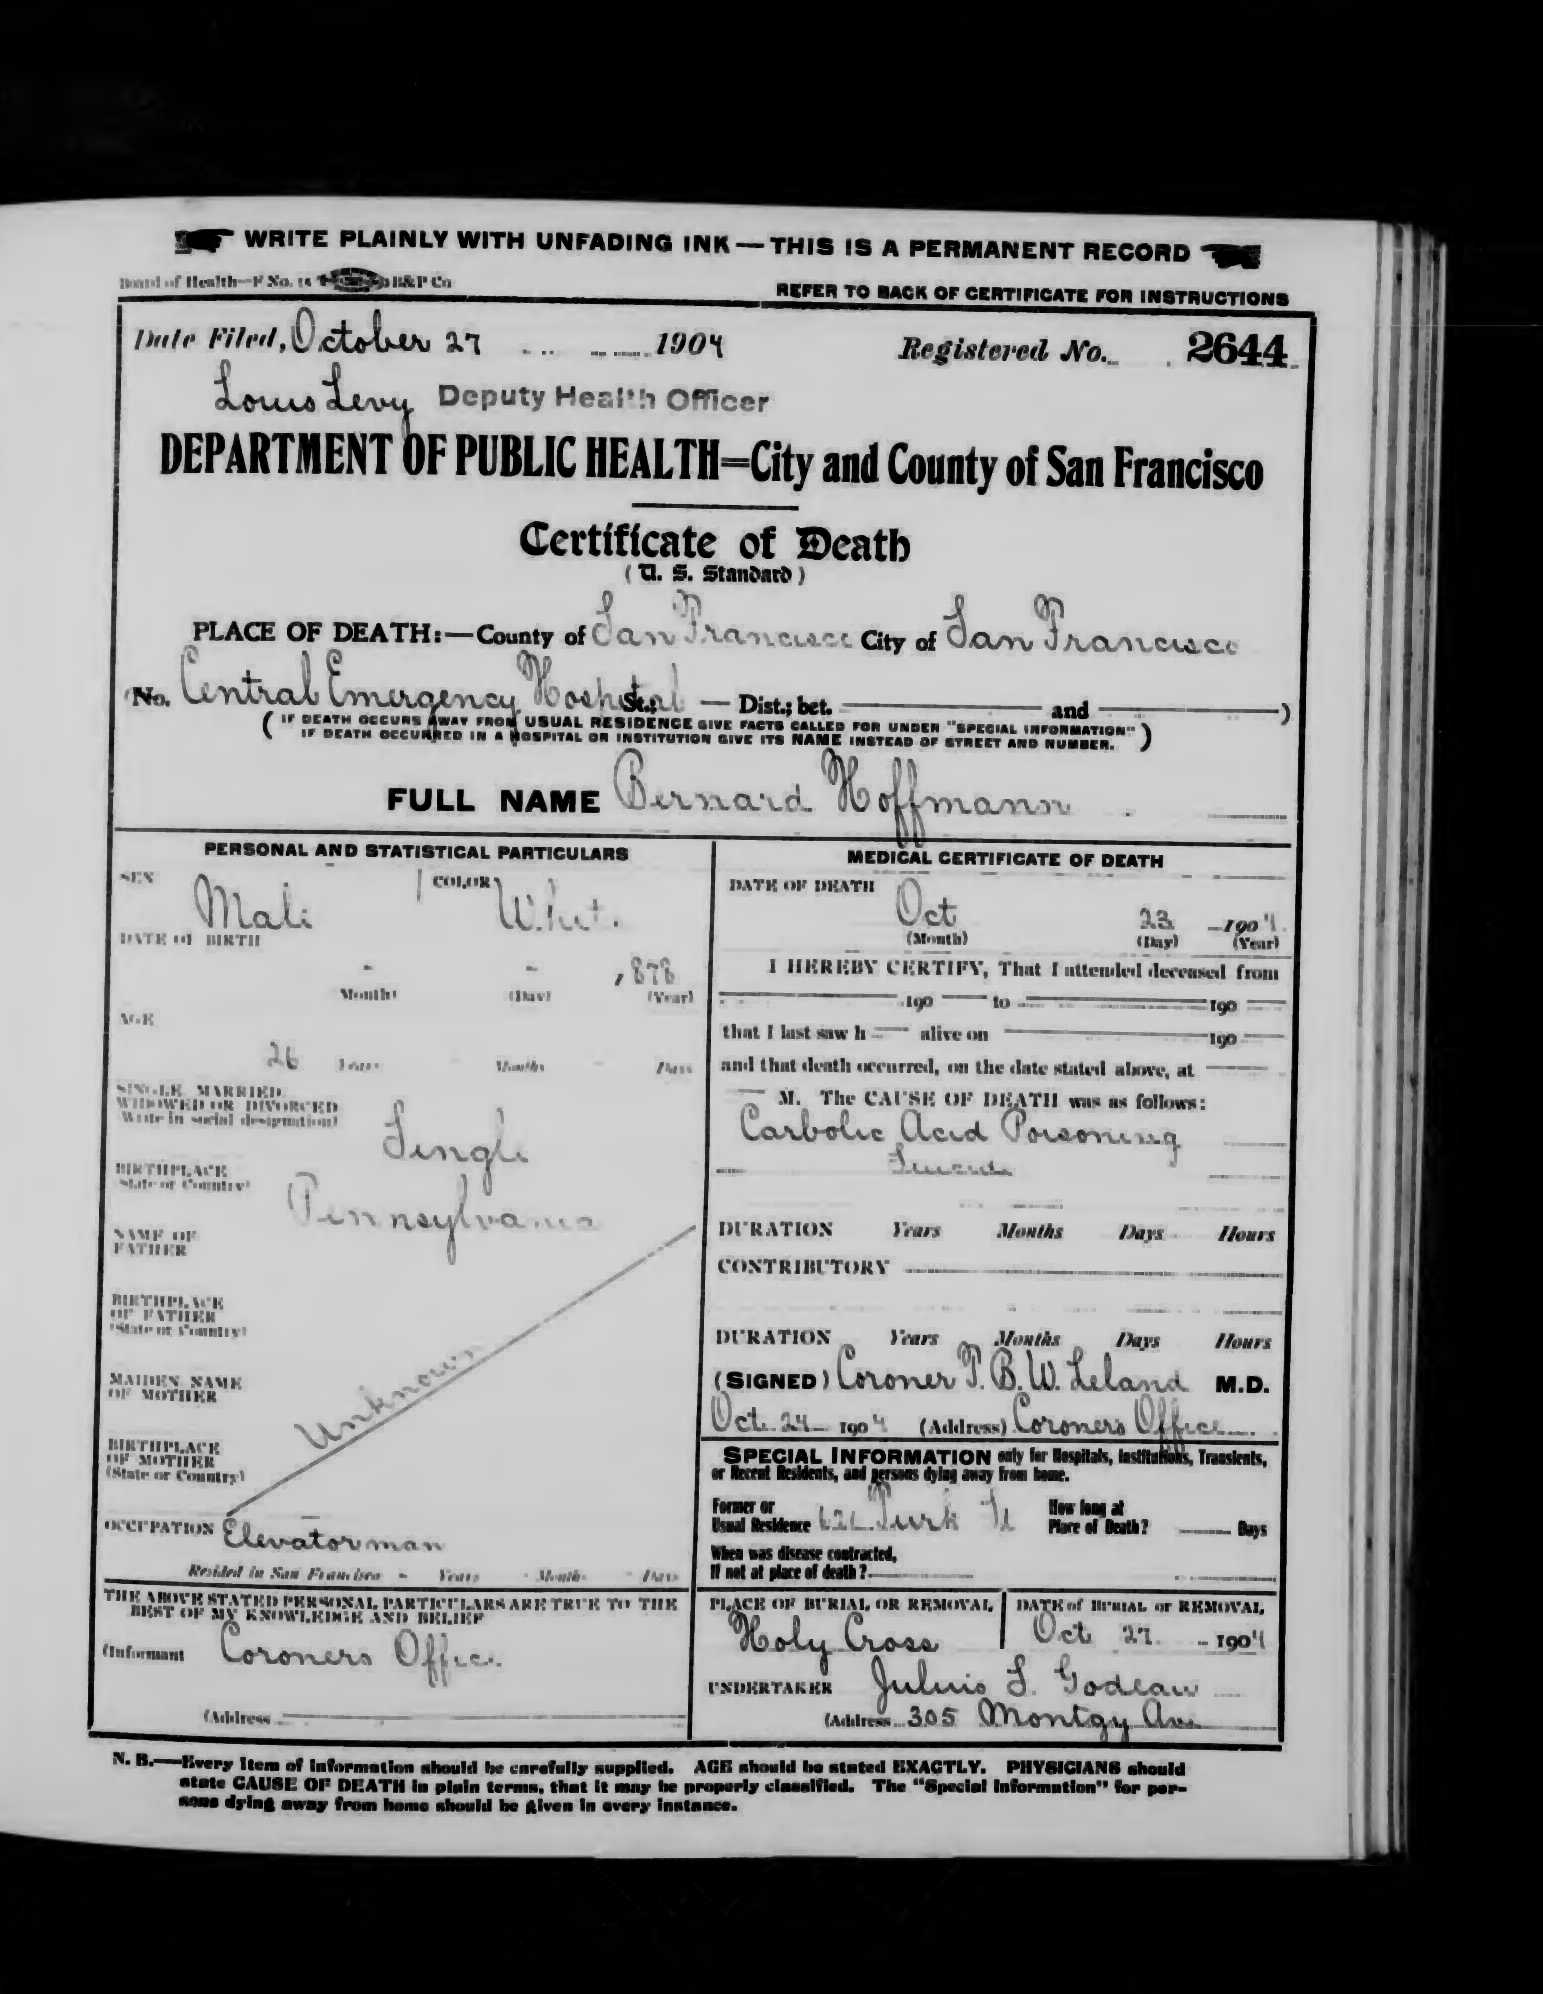 WRITE PLAINLY WITH UNFADING INK — THIS IS A PERMANENT RECORD
Board of Health—F No. B&P Co
REFER TO BACK OF CERTIFICATE FOR INSTRUCTIONS
Date Filed, October 27 1904 Registered No. 2644
Louis Levy Deputy Health Officer
DEPARTMENT OF PUBLIC HEALTH=City and County of San Francisco
Certificate of Death
( U. S. Standard )
PLACE OF DEATH:—County of San Francisco City of San Francisco
(No. Central Emergency Hospital St.; — Dist.; bet. — and — )
( IF DEATH OCCURS AWAY FROM USUAL RESIDENCE GIVE FACTS CALLED FOR UNDER "SPECIAL INFORMATION"
IF DEATH OCCURRED IN A HOSPITAL OR INSTITUTION GIVE ITS NAME INSTEAD OF STREET AND NUMBER. )
FULL NAME Bernard Hoffmann
PERSONAL AND STATISTICAL PARTICULARS
SEX Male COLOR White
DATE OF BIRTH
- - 1878
(Month) (Day) (Year)
AGE
26 Years Months Days
SINGLE, MARRIED,
WIDOWED OR DIVORCED
(Write in social designation) Single
BIRTHPLACE
(State or Country) Pennsylvania
NAME OF
FATHER
BIRTHPLACE
OF FATHER
(State or Country)
MAIDEN NAME
OF MOTHER
Unknown
BIRTHPLACE
OF MOTHER
(State or Country)
OCCUPATION Elevatorman
Resided in San Francisco - Years - Months - Days
THE ABOVE STATED PERSONAL PARTICULARS ARE TRUE TO THE
BEST OF MY KNOWLEDGE AND BELIEF
(Informant Coroners Office
(Address
MEDICAL CERTIFICATE OF DEATH
DATE OF DEATH
Oct 23 1904
(Month) (Day) (Year)
I HEREBY CERTIFY, That I attended deceased from
190 to 190
that I last saw h — alive on — 190
and that death occurred, on the date stated above, at —
— M. The CAUSE OF DEATH was as follows:
Carbolic Acid Poisoning
Suicide
DURATION Years Months Days Hours
CONTRIBUTORY
DURATION Years Months Days Hours
(SIGNED) Coroner T. B. W. Leland M.D.
Oct. 24 1904 (Address) Coroners Office
SPECIAL INFORMATION only for Hospitals, Institutions, Transients,
or Recent Residents, and persons dying away from home.
Former or
Usual Residence Turk St
How long at
Place of Death? — Days
When was disease contracted,
If not at place of death?
PLACE OF BURIAL OR REMOVAL
Holy Cross
DATE of BURIAL or REMOVAL
Oct 27 1904
UNDERTAKER Julius S. Godeau
(Address 305 Montgy Ave
N. B.—Every item of information should be carefully supplied. AGE should be stated EXACTLY. PHYSICIANS should
state CAUSE OF DEATH in plain terms, that it may be properly classified. The "Special Information" for per-
sons dying away from home should be given in every instance.